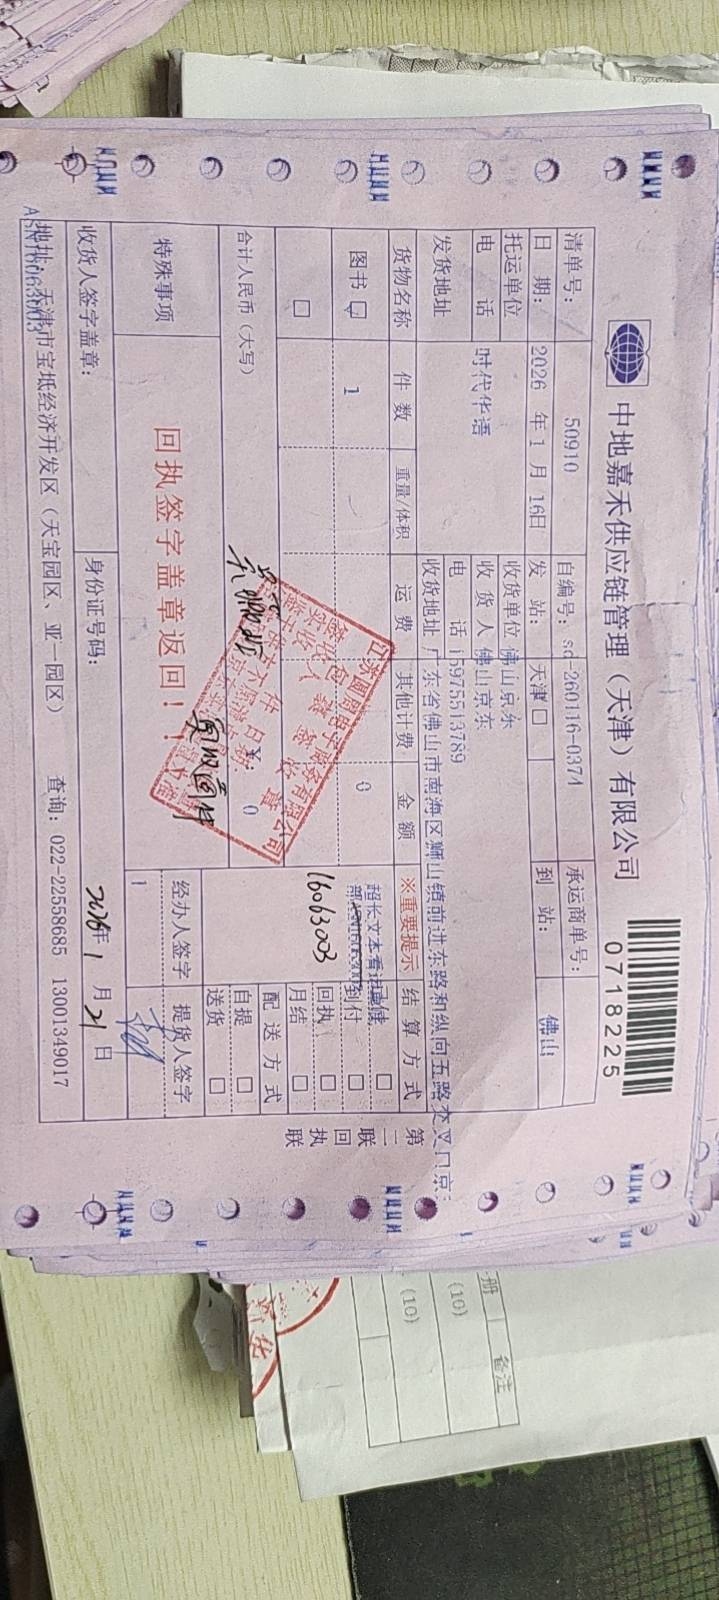 中地嘉禾供应链管理（天津）有限公司
0718225
清单号： 50910 自编号：sd 260116-0374 承运商单号：
日 期： 2026 年 1 月 16日 发 站： 天津 到 站： 佛山
托运单位 时代华语 收货单位 佛山京东
电 话 收 货 人 佛山京东
电 话 15975513789
发货地址 收货地址 广东省佛山市南海区狮山镇前进东路和纵向五路交叉口京
货物名称 件 数 重量/体积 运 费 其他计费 金 额 ※重要提示 结 算 方 式
图书 1 0
16063003
到付
回执
月结
配 送 方 式
自提
送货
合计人民币（大写） ¥: 0
特殊事项 回执签字盖章返回！！ 经办人签字 提货人签字
1
收货人签字盖章： 身份证号码： 2026年 1 月 21 日
地址：天津市宝坻经济开发区（天宝园区、亚一园区） 查询：022-22558685 13001349017
第二联 回执联
册 备注
(10)
(10)